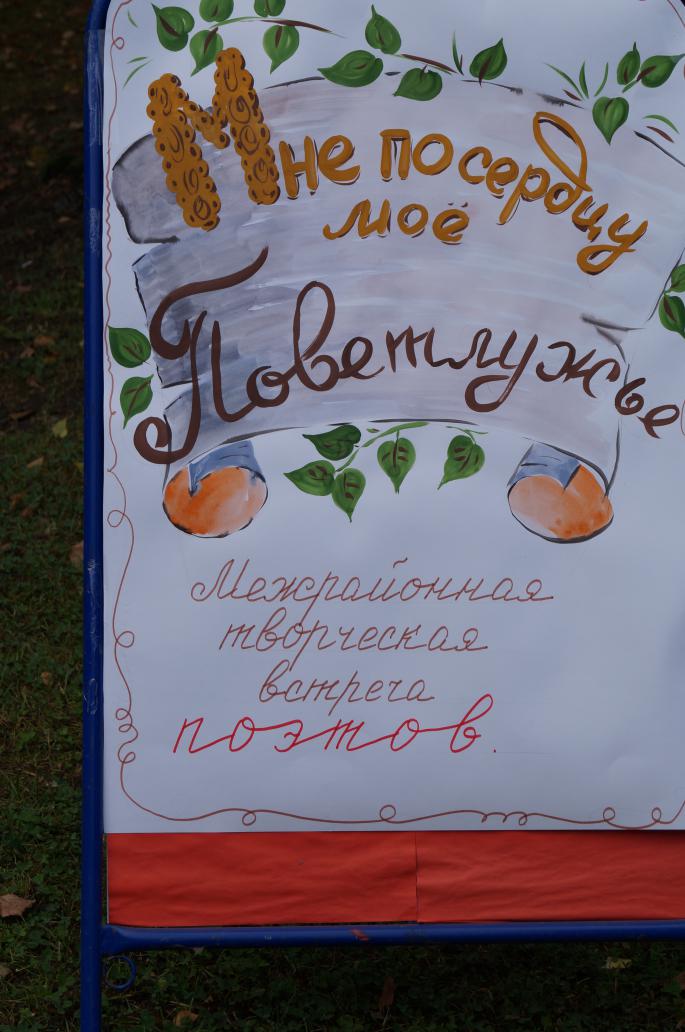 Мне по сердцу
моё
Поветлужье
Межрайонная
творческая
встреча
поэтов.